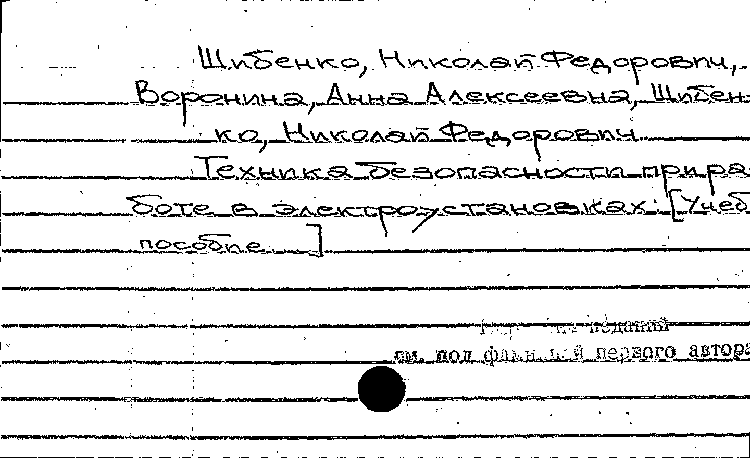 Шибенко, Николай Федорович,
Воронина, Анна Алексеевна, Шибен-
ко, Николай Федорович
Техника безопасности при ра
боте в электроустановках: [Учеб
пособие ]
изданий
см. под фамилией первого автора